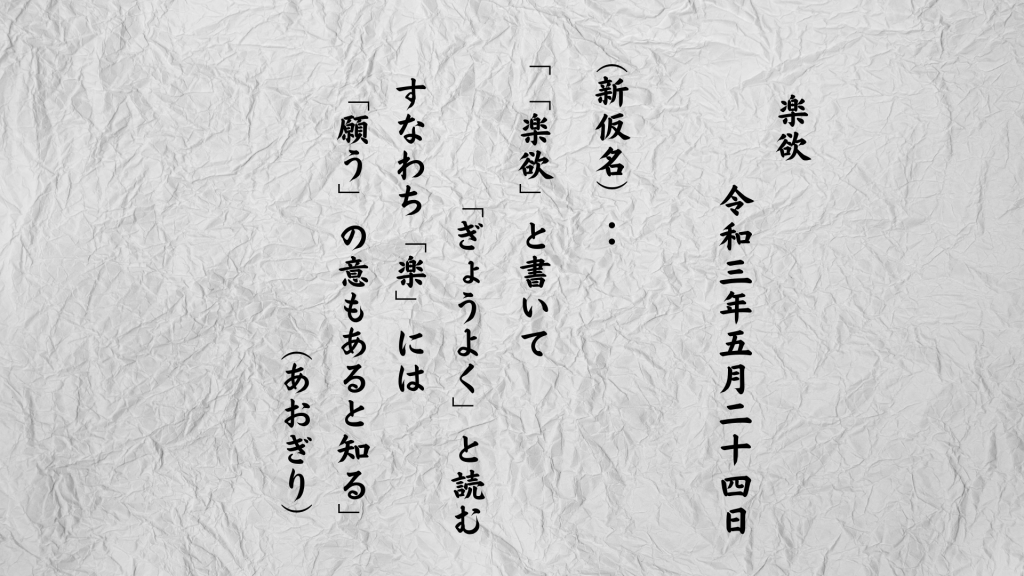 楽欲
令和三年五月二十四日
（新仮名）：
「「楽欲」と書いて
「ぎょうよく」と読む
すなわち「楽」には
「願う」の意もあると知る」
（あおぎり）